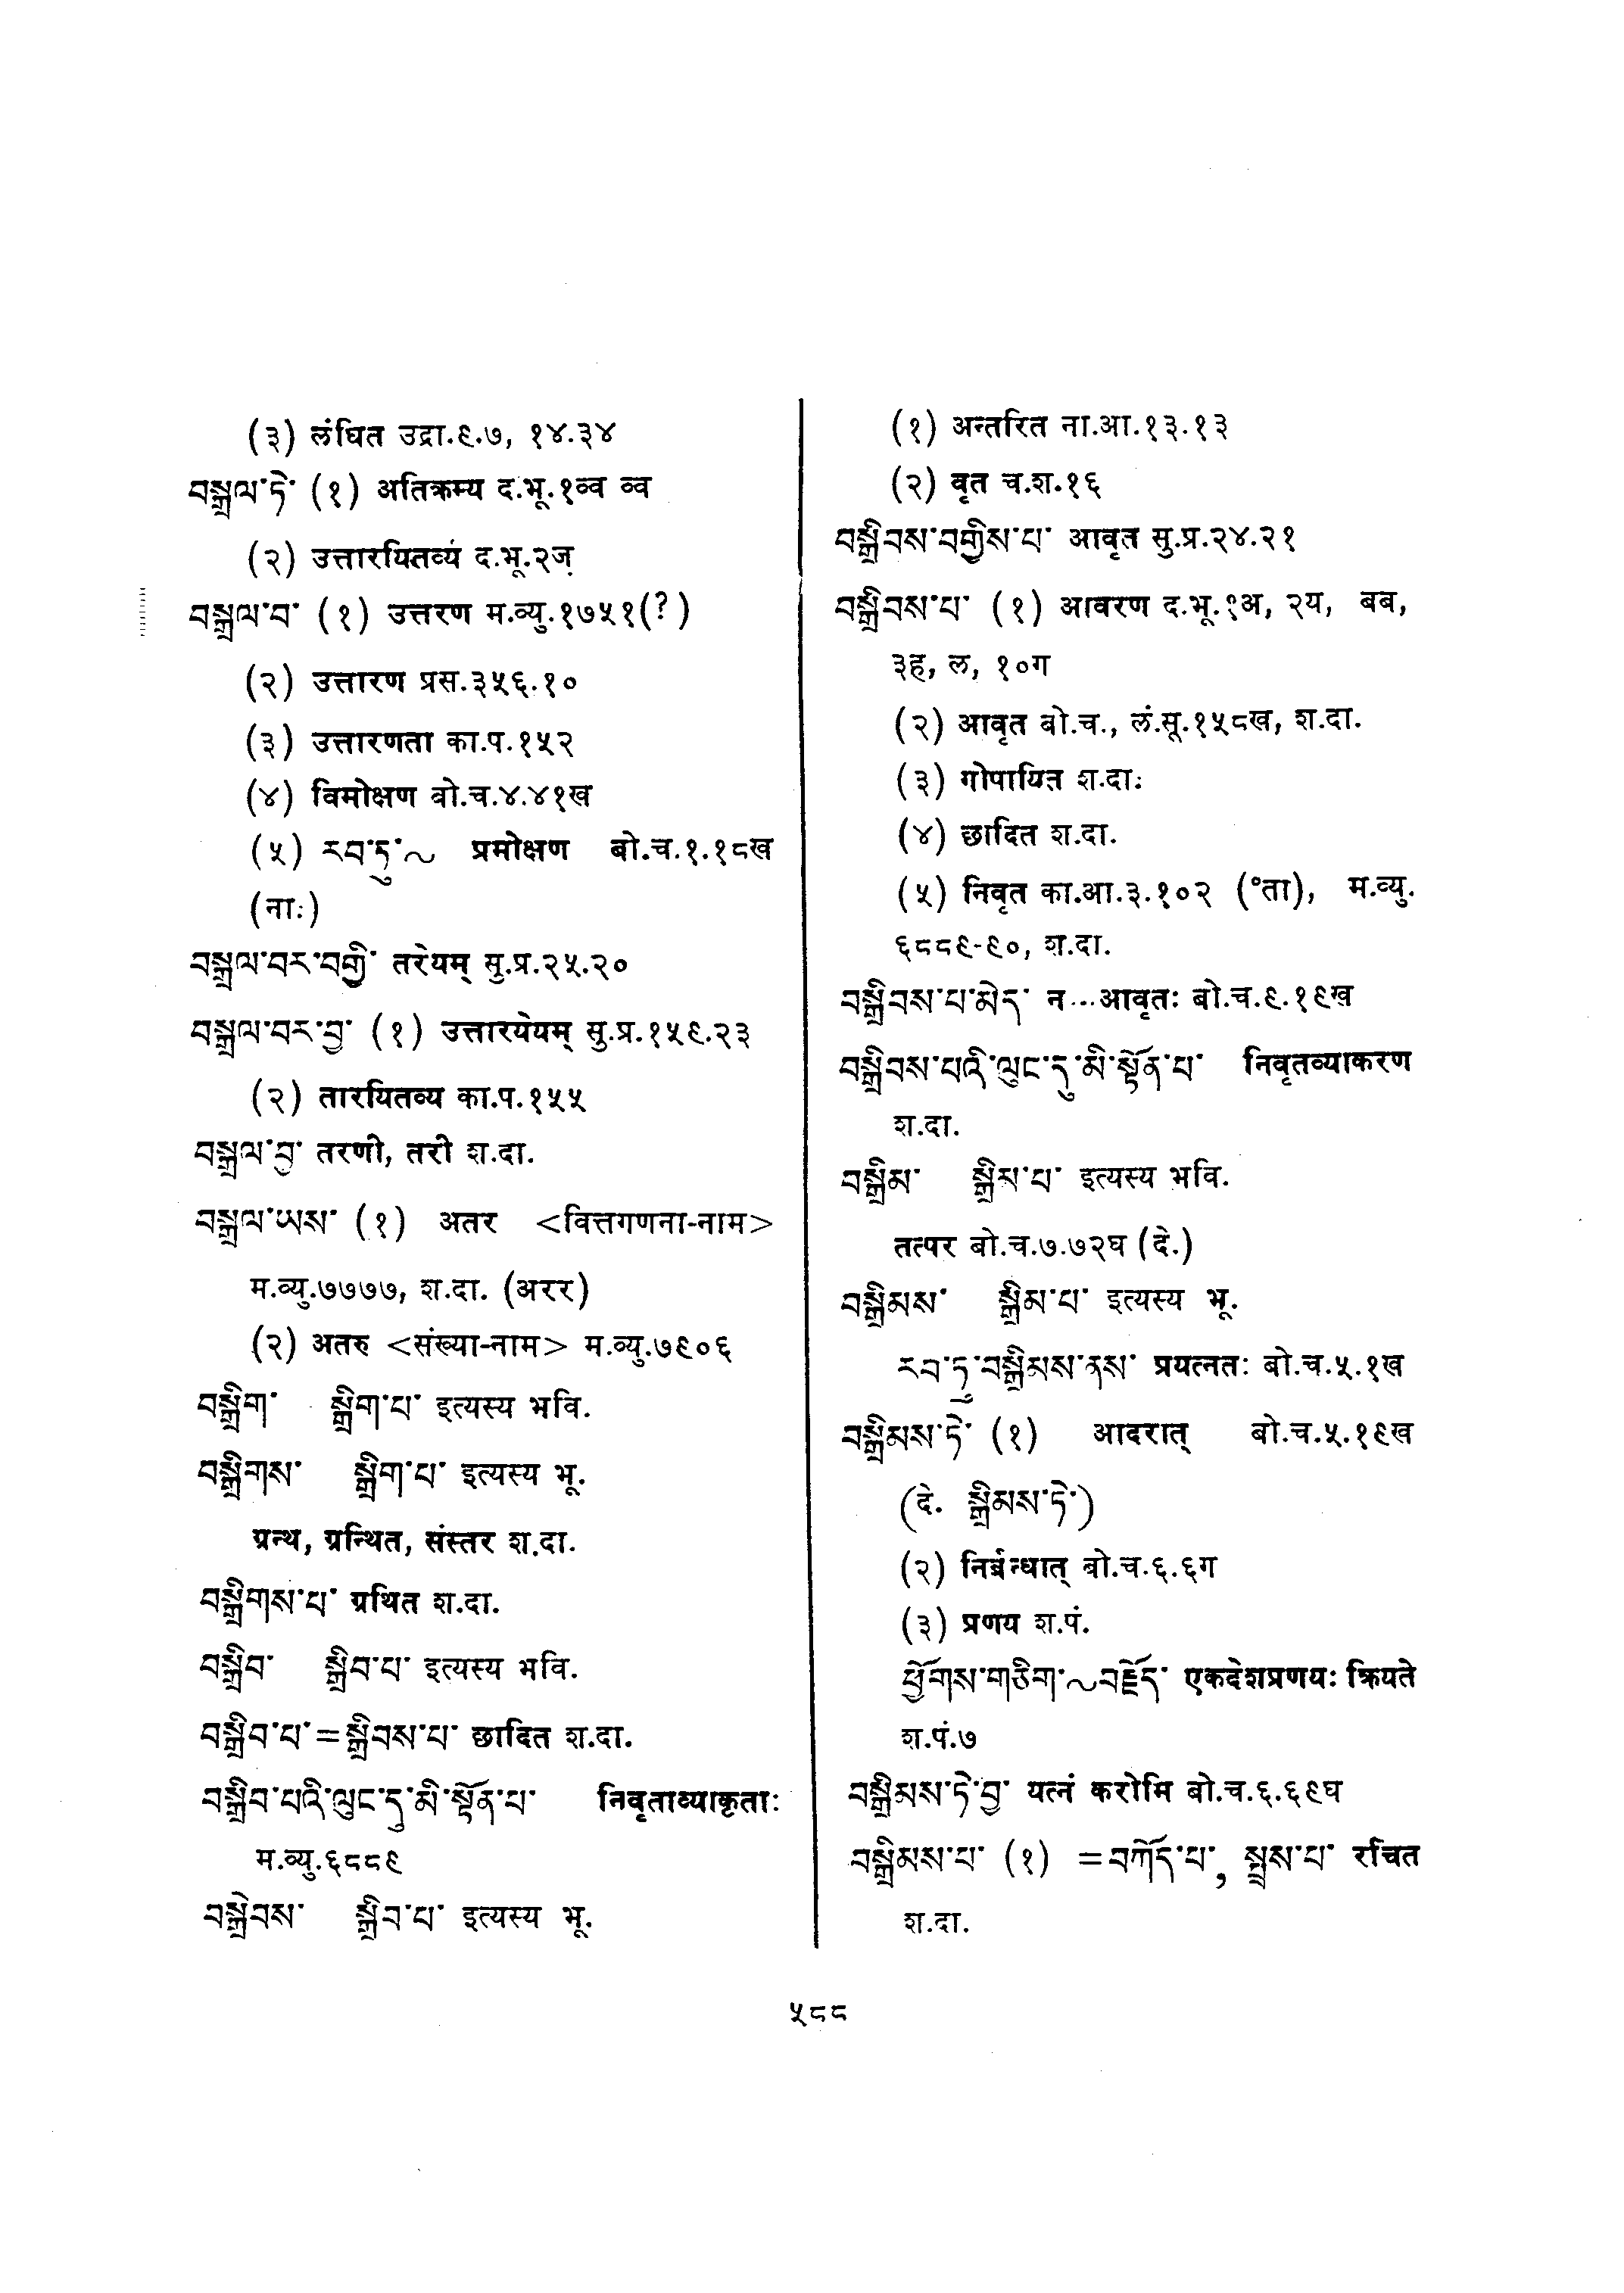 (३) लंघित उद्रा.९.७, १४.३४
བསྒྲལ་ཏེ་ (१) अतिक्रम्य द.भू.१व्व व्व
(२) उत्तारयितव्यं द.भू.२ज़
བསྒྲལ་བ་ (१) उत्तरण म.व्यु.१७५१(?)
(२) उत्तारण प्रस.३५६.१०
(३) उत्तारणता का.प.१५२
(४) विमोक्षण बो.च.४.४१ख
(५) རབ་ཏུ་~ प्रमोक्षण बो.च.१.१८ख
(नाः)
བསྒྲལ་བར་བགྱི་ तरेयम् सु.प्र.२५.२०
བསྒྲལ་བར་བྱ་ (१) उत्तारयेयम् सु.प्र.१५९.२३
(२) तारयितव्य का.प.१५५
བསྒྲལ་བྱ་ तरणी, तरी श.दा.
བསྒྲལ་ཡས་ (१) अतर <वित्तगणना-नाम>
म.व्यु.७७७७, श.दा. (अरर)
(२) अतरु <संख्या-नाम> म.व्यु.७९०६
བསྒྲིག་ སྒྲིག་པ་ इत्यस्य भवि.
བསྒྲིགས་ སྒྲིག་པ་ इत्यस्य भू.
ग्रन्थ, ग्रन्थित, संस्तर श.दा.
བསྒྲིགས་པ་ ग्रथित श.दा.
བསྒྲིབ་ སྒྲིབ་པ་ इत्यस्य भवि.
བསྒྲིབ་པ་=སྒྲིབས་པ་ छादित श.दा.
བསྒྲིབ་པའི་ལུང་དུ་མི་སྟོན་པ་ निवृताव्याकृताः
म.व्यु.६८८९
བསྒྲེབས་ སྒྲིབ་པ་ इत्यस्य भू.
(१) अन्तरित ना.आ.१३.१३
(२) वृत च.श.१६
བསྒྲིབས་བགྱིས་པ་ आवृत सु.प्र.२४.२१
བསྒྲིབས་པ་ (१) आवरण द.भू.१अ, २य, बब,
३ह, ल, १०ग
(२) आवृत बो.च., लं.सू.१५८ख, श.दा.
(३) गोपायित श.दाः
(४) छादित श.दा.
(५) निवृत का.आ.३.१०२ (°ता), म.व्यु.
६८८९-९०, श.दा.
བསྒྲིབས་པ་མེད་ न...आवृतः बो.च.९.१९ख
བསྒྲིབས་པའི་ལུང་དུ་མི་སྟོན་པ་ निवृतव्याकरण
श.दा.
བསྒྲིམ་ སྒྲིམ་པ་ इत्यस्य भवि.
तत्पर बो.च.७.७२घ (दे.)
བསྒྲིམས་ སྒྲིམ་པ་ इत्यस्य भू.
རབ་ཏུ་བསྒྲིམས་ནས་ प्रयत्नतः बो.च.५.१ख
བསྒྲིམས་ཏེ་ (१) आदरात् बो.च.५.१९ख
(दे. སྒྲིམས་ཏེ་)
(२) निर्बन्धात् बो.च.६.६ग
(३) प्रणय श.पं.
ཕྱོགས་གཅིག་~བརྗོད་ एकदेशप्रणयः क्रियते
श.पं.७
བསྒྲིམས་ཏེ་བྱ་ यत्नं करोमि बो.च.६.६९घ
བསྒྲིམས་པ་ (१) =བཀོད་པ་, སྤྲས་པ་ रचित
श.दा.
५८८